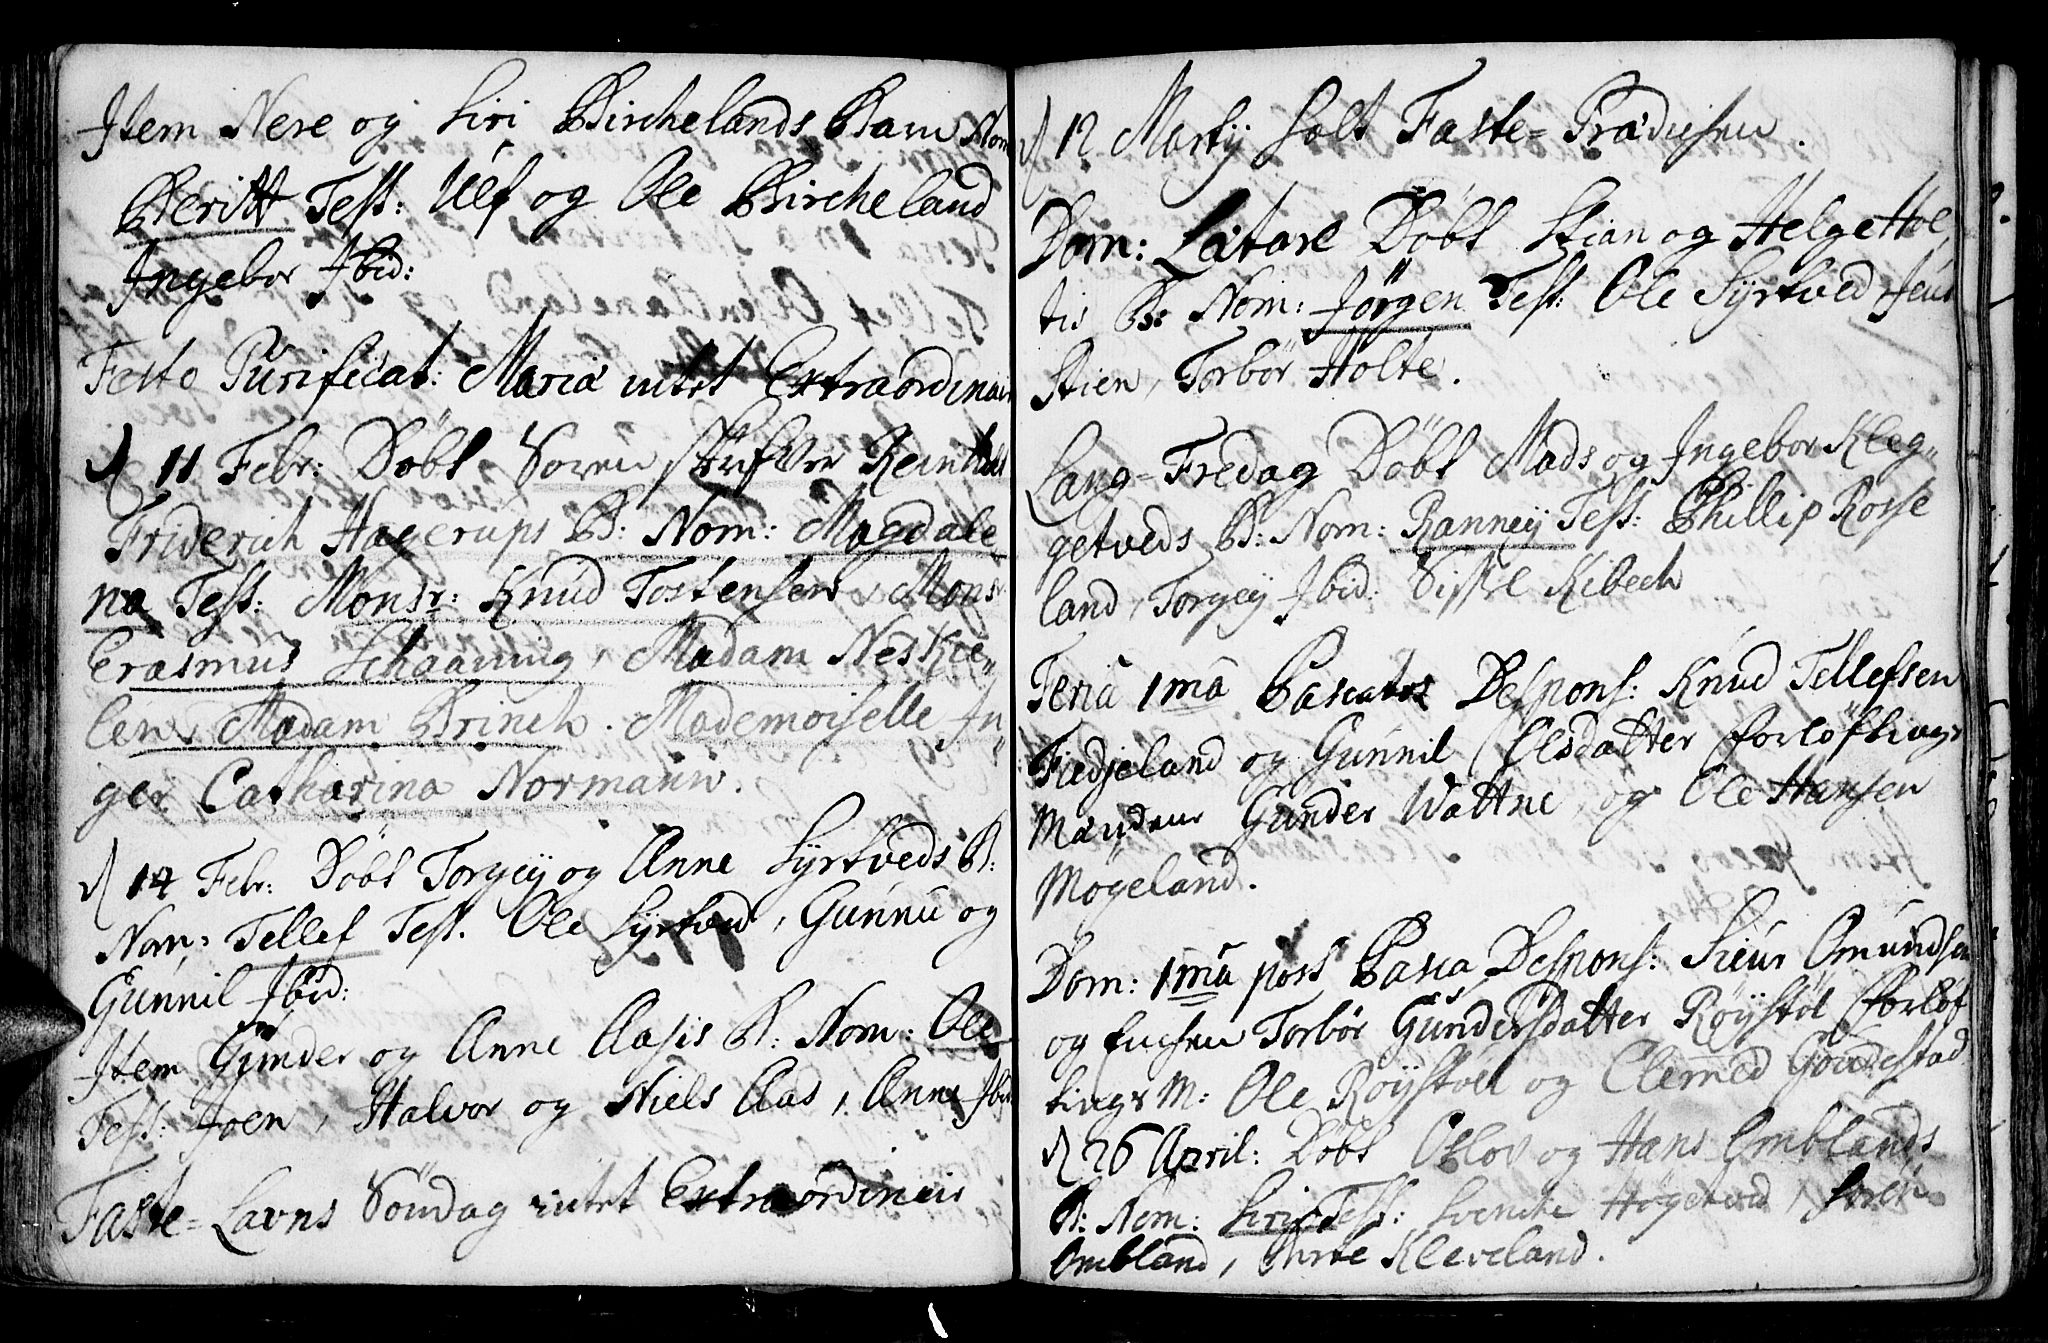 Item Nere og Siri Birchelands Barn Nom
Beritt Test: Ulf og Ole Bircheland
Ingebor Ibid:
Festo Purificat: Mariæ intet Extraordinair
d 11 Febr: Døbt Soren Reinholt
Friderich Hagerups B: Nom: Magdale
na Test: Monsr: Knud Tostensen Mons
Erasmus Schaaning, Madam Neskie„
len, Madam Brinch. Mademoiselle In„
ger Catharina Normann.
d 14 Febr: Døbt Torgey og Anne Syrtveds B:
Nom: Tellef Test. Ole Syrtved, Gunnu og
Gunnil Ibid:
Item Gunder og Anne Aasis B: Nom: Ole
Test: Joen, Halvor og Niels Aas, Anne Ibid
Faste=Lavns Søndag intet Extraordinair
d 12 Martij holt Faste=Prædichen.
Dom: Lætare Døbt Stian og Helge Hol
tis B: Nom: Jørgen Test: Ole Syrtved Jens
Stien, Torbør Holte.
Lang=Fredag Døbt Mads og Ingebor Kleg„
getveds B: Nom: Ranney Test: Phillip Rosse
land, Torgey Ibid: Sissel Kibech
Feria 1ma Pascatos Despons: Knud Tellefsen
Fiedjeland og Gunnil Olsdatter forløftings
Mændene Gunder Wattne, og Ole Hansen
Møgeland.
Dom: 1ma post Pasca Despons: Siur Omundsen
og Enchen Torbør Gundersdatter Røystøl forløf
tings M: Ole Røystøel og Clemed Goudestad
d 26 April: Døbt Oslov og Hans Omblands
B: Nom: Siri Test: Svenche Høgetved, Soren
Ombland, Birte Kleveland.